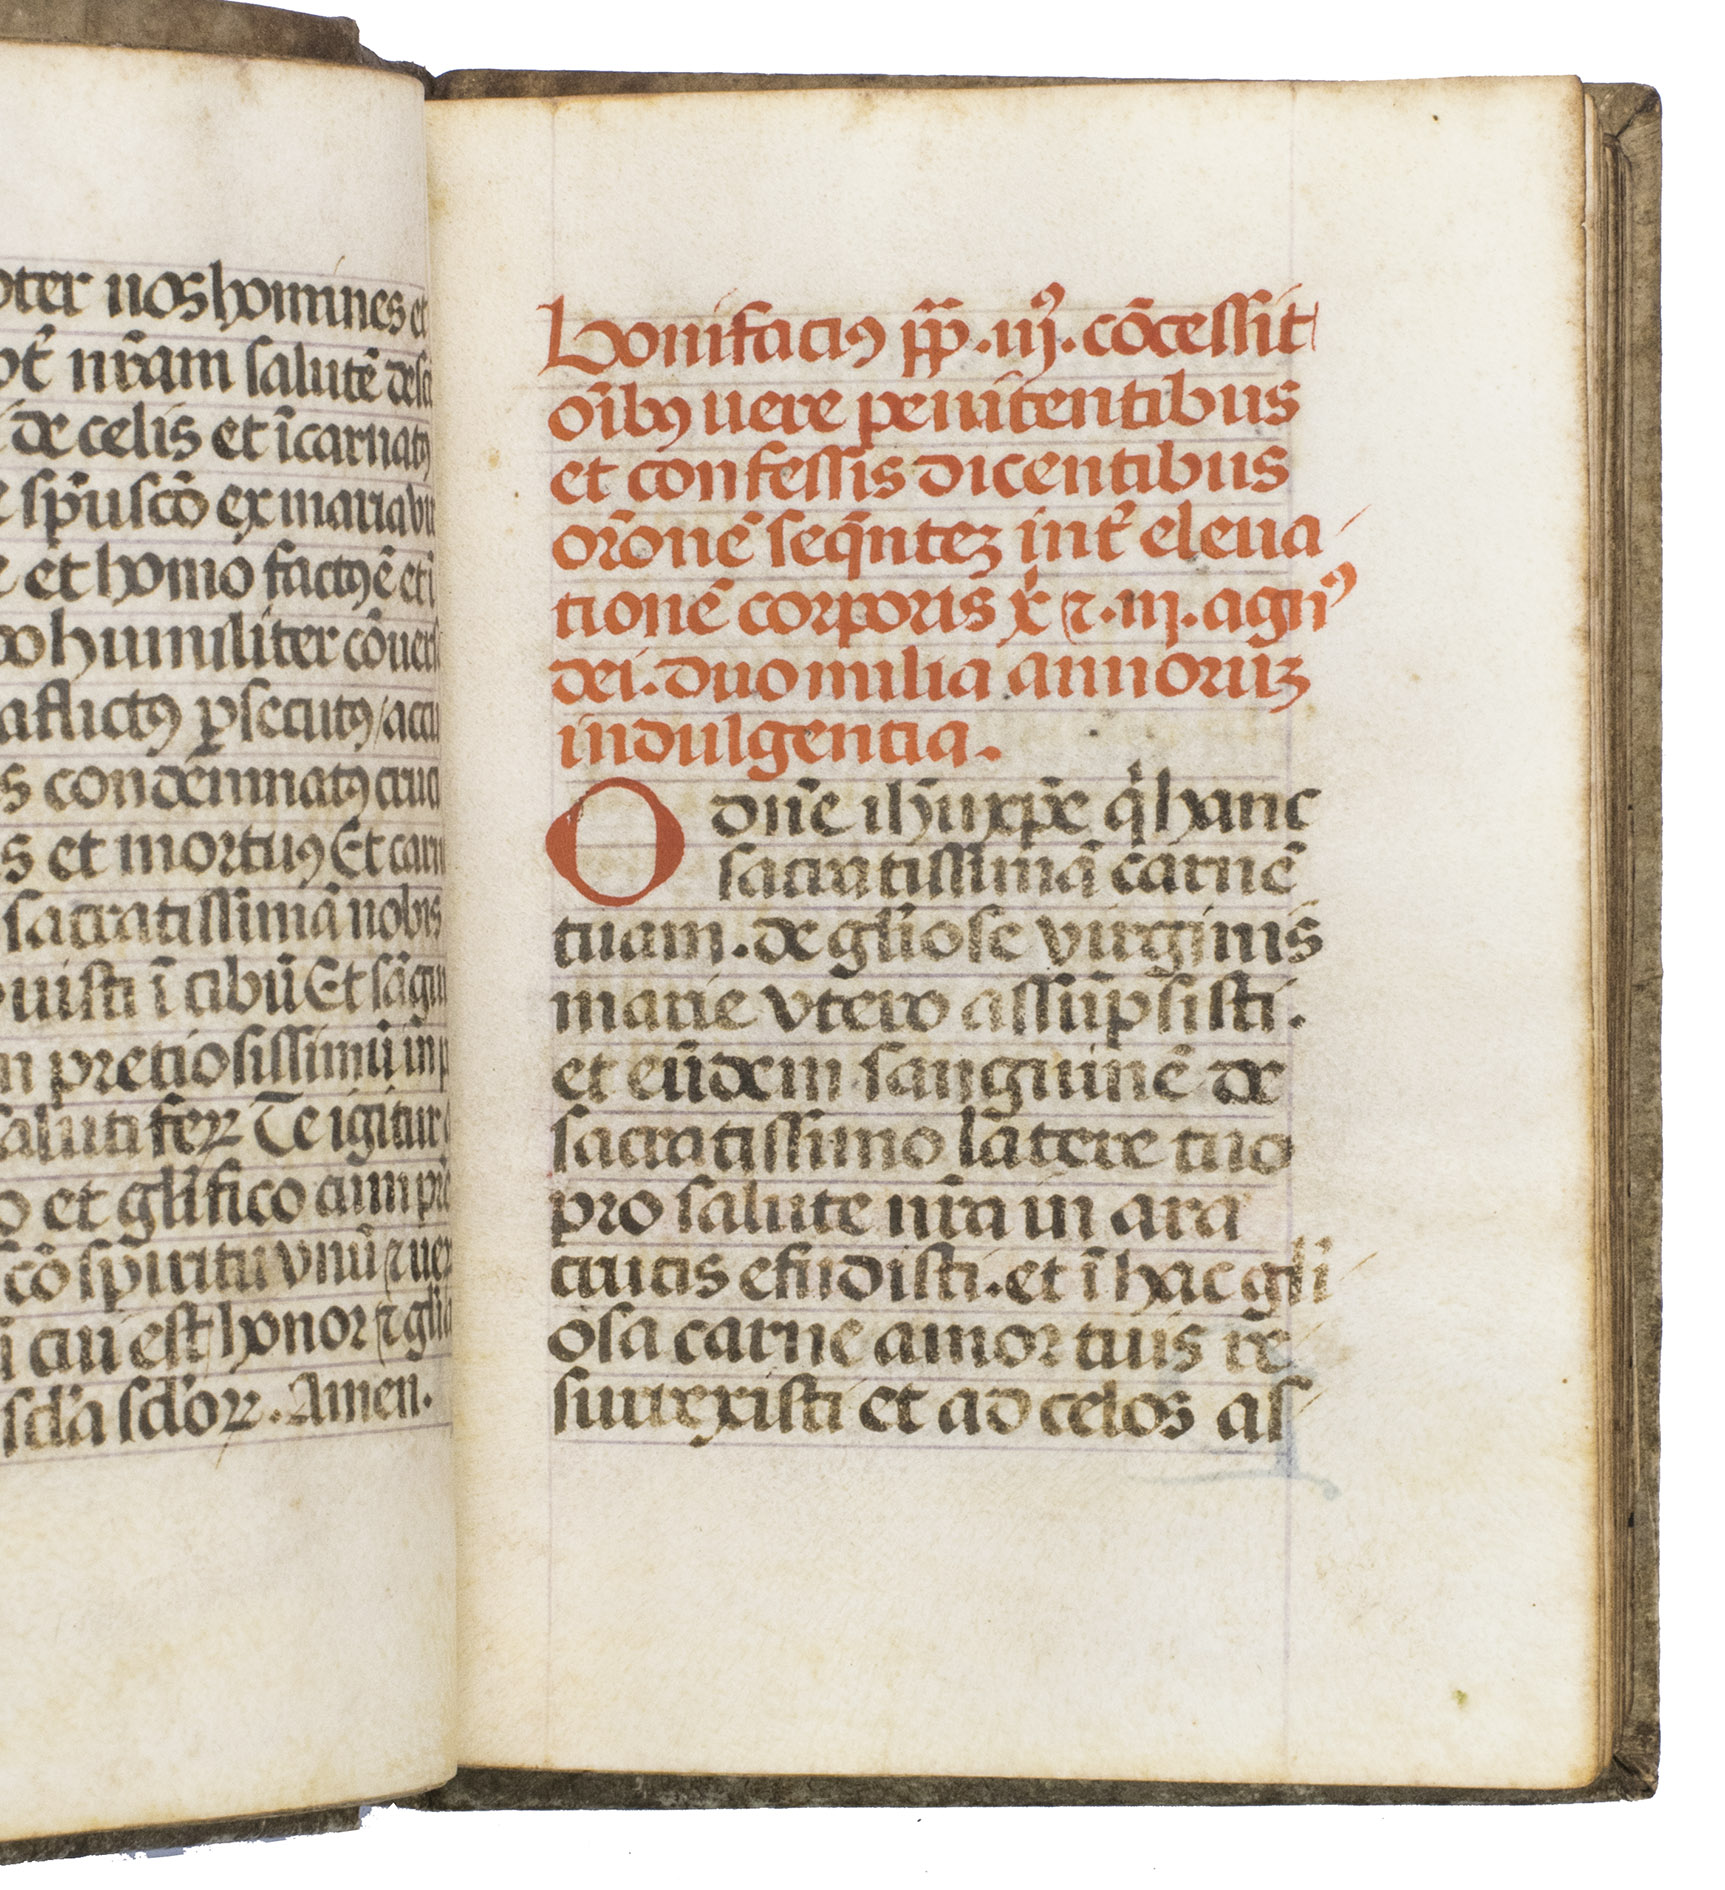 nos homines et
nr̄am salutē desce
de celis et īcarnatꝰ
sp̄u scō ex maria vir
et homo factꝰ ē et i
humiliter cōuers
aflictꝰ ꝑsecutꝰ / accu
condēmnatꝰ cruci
s et mortuꝰ Et carn
sacratissimā nobis
ī cibū Et sāgui
n pretiosissimū in p
saluti ferꝝ Te igitur
o et glīfico cum pr̄e
scō spiritu vnū ⁊ uer
cui est honor ⁊ glīa
scl̄a scl̄oꝝ. Amen.
Bonifacius pp̄. iijꝰ. cōcessit
oībꝰ uere penitentibus
et confessis dicentibus
orōnē seqn̄teꝫ int̄ eleua
tionē corporis xp̄i ⁊ .iij. agnꝰ
dei. duo milia annoruꝫ
indulgentia.
O dn̄e ih̄u xp̄e qͥ hanc
sacratissimā carnē
tuam. de gl̄iose virginis
marie vtero assūpsisti.
et eūdem sanguinē de
sacratissimo latere tuo
pro salute nr̄a in ara
crucis efudisti. et ī hac gl̄i
osa carne a mortuis re
surrexisti et ad celos as